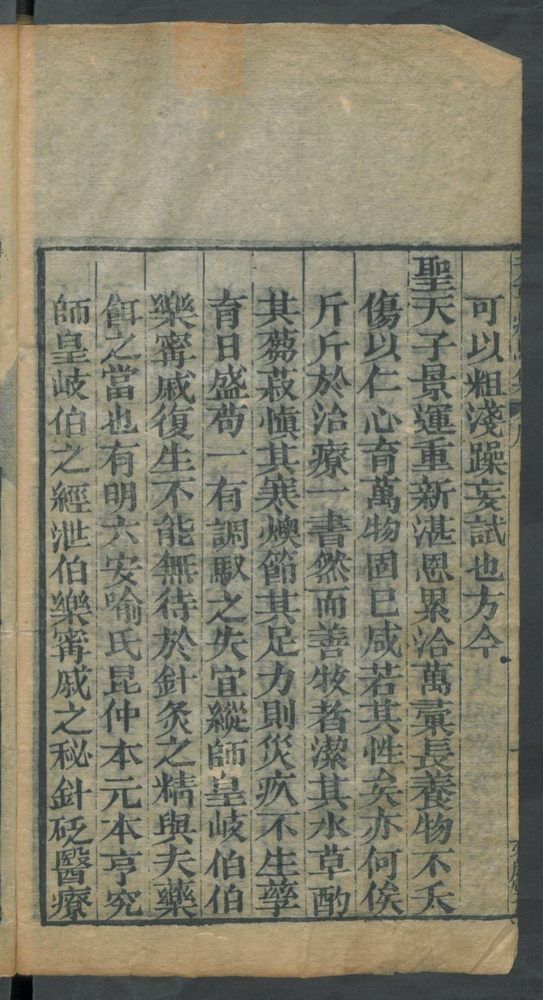 可以粗淺躁妄試也方今
聖天子景運重新湛恩累洽萬彙長養物不夭
傷以仁心育萬物固已咸若其性矣亦何俟
斤斤於治療一書然而善牧者潔其水草酌
其芻菽慎其寒燠節其足力則災疚不生孳
育日盛苟一有調馭之失宜縱師皇岐伯伯
樂甯戚復生不能無待於針灸之精與夫藥
餌之當也有明六安喻氏昆仲本元本亨究
師皇岐伯之經泄伯樂甯戚之秘針砭醫療